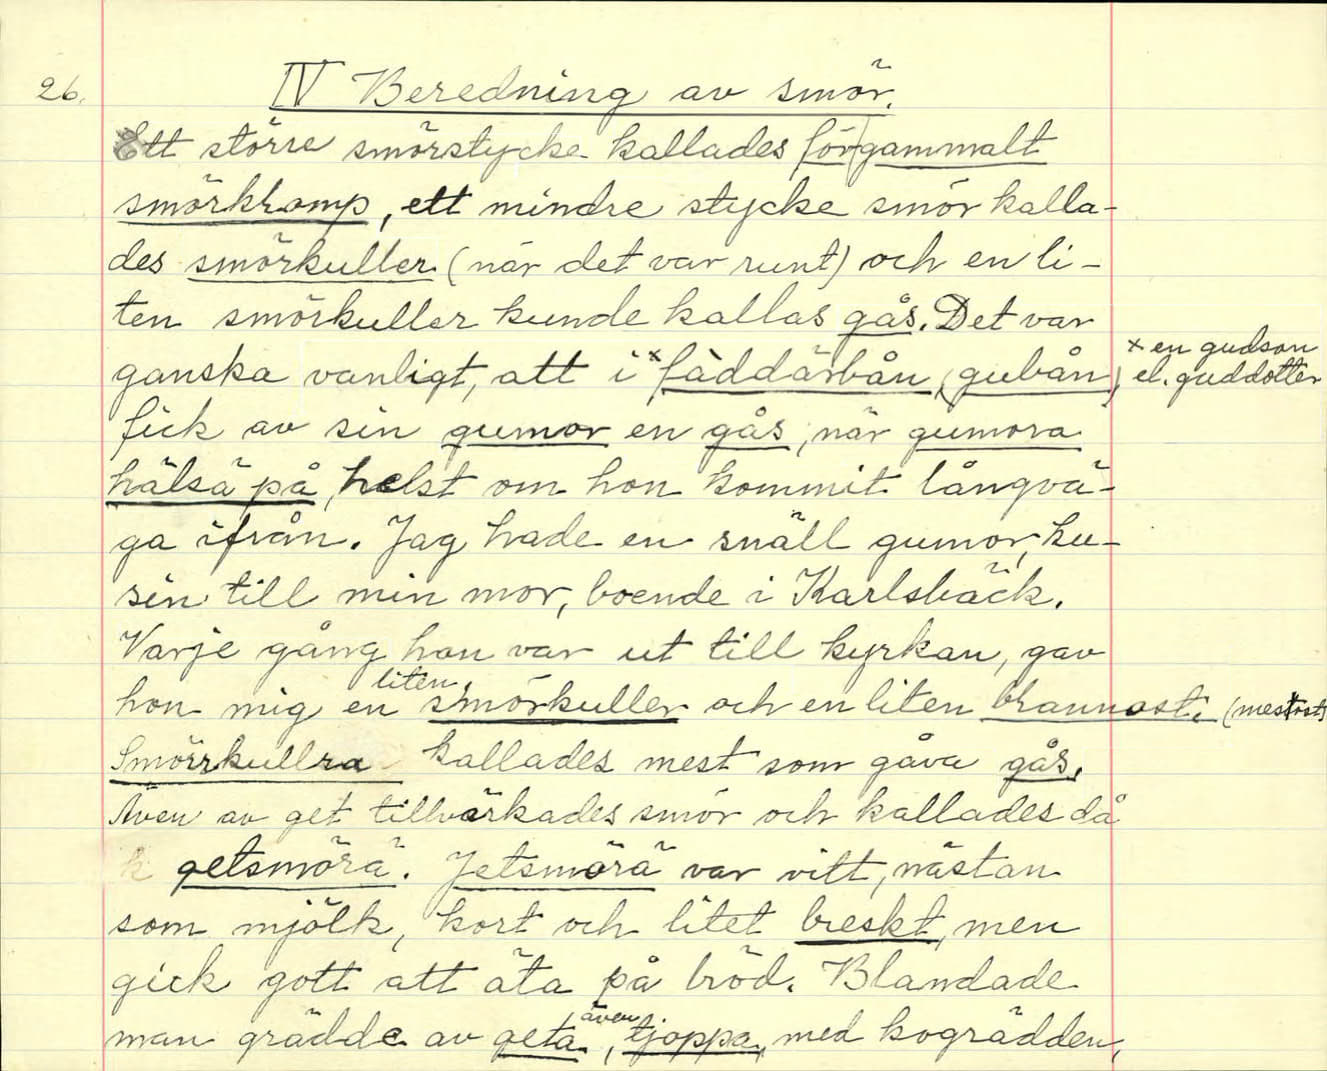 26.
IV Beredning av smör.
Ett större smörstycke kallades för gammalt
smörklamp, ett mindre stycke smör kalla-
des smörkuller (när det var runt) och en li-
ten smörkuller kunde kallas gås. Det var
ganska vanligt, att i x fàddärbån (gubån)
x en gudson
el. guddotter
fick av sin gumor en gås, när gumora
hälsä på, helst om hon kommit långvä-
ga ifrån. Jag hade en snäll gumor, ku-
sin till min mor, boende i Karlsbäck.
Varje gång hon var ut till kyrkan, gav
hon mig en liten smörkuller och en liten brannost. (mesost)
Smörrkullra kallades mest som gåva gås.
Även av get tillvärkades smör och kallades då
getsmörä. Jetsmörä var vitt, nästan
som mjölk, kort och litet breskt, men
gick gott att äta på bröd. Blandade
man grädde av geta, även tjoppa, med kogrädden,